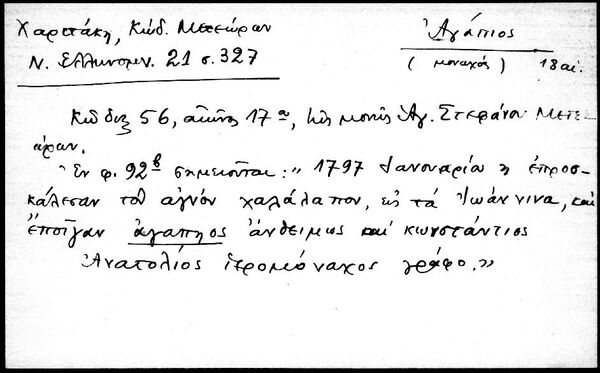 Χαριτάκη, Κώδ. Μετεώρων
Ν. Ἑλληνομν. 21 σ. 327
Ἀγάπιος
(μοναχός) 18 αἰ.
Κῶδιξ 56, αἰῶνος 17ου, τῆς μονῆς Ἁγ. Στεφάνου Μετε-
ώρων.
Ἐν φ. 92β σημειοῦται: „1797 Ἰανουαρία η ἐπροσ-
κάλεσαν τοῦ αγνόν χαλάλαπον, εις τά Ἰωάννινα, και
ἔποίγαν ἀγαπηος ἄνθειμως και κωνστάντιος
Ἀνατολιός ἱερομόναχος γράφο.”